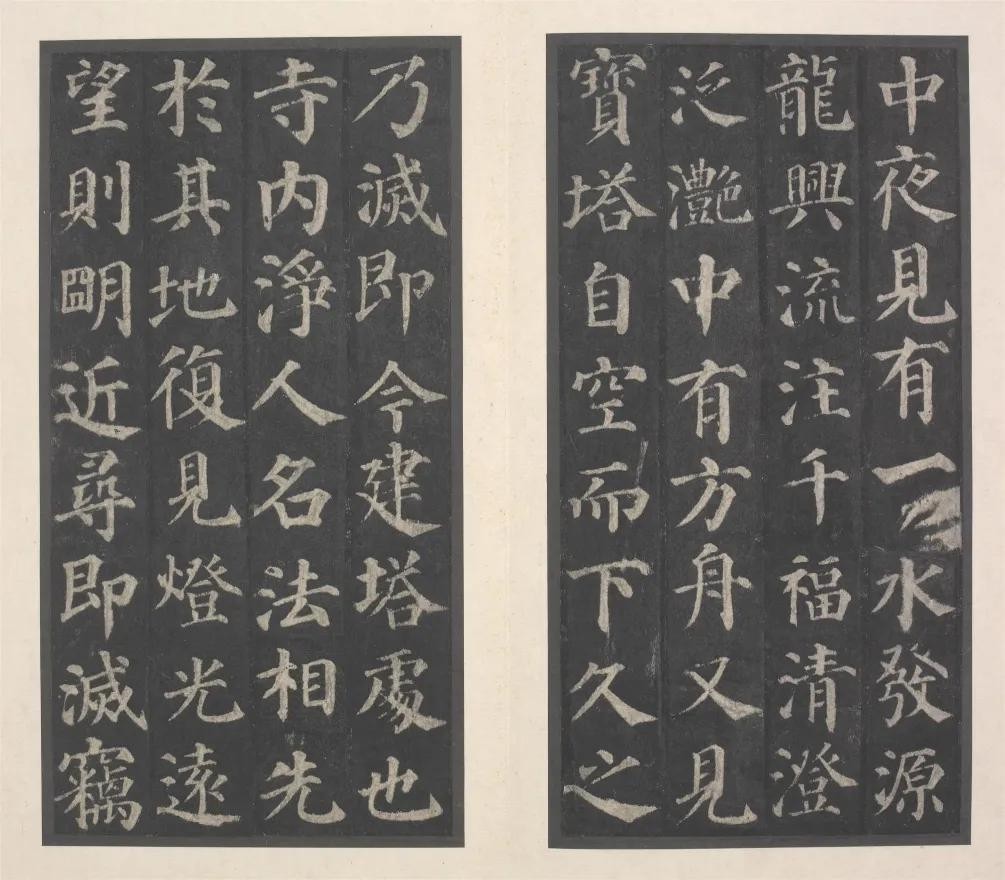 中夜見有一水發源
龍興流注千福清澄
泛灧中有方舟又見
寶塔自空而下久之
乃滅即今建塔處也
寺內淨人名法相先
於其地復見燈光遠
望則眀近尋即滅竊